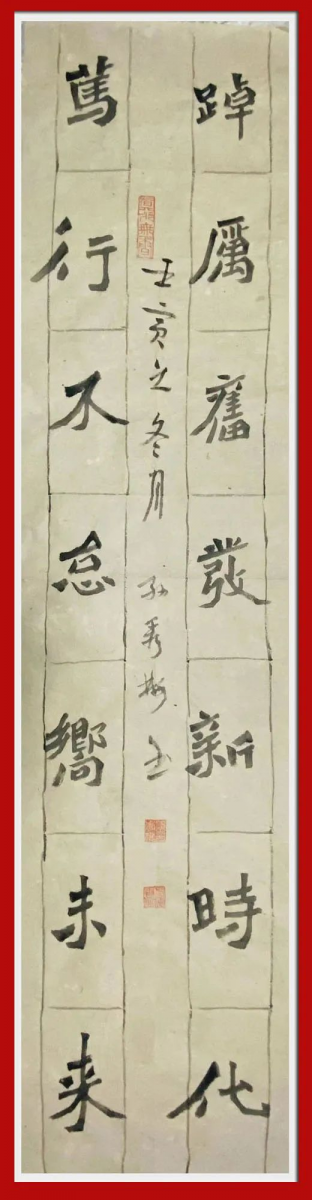 踔厲奮發新時代
篤行不怠嚮未来
壬寅之冬月 孙秀